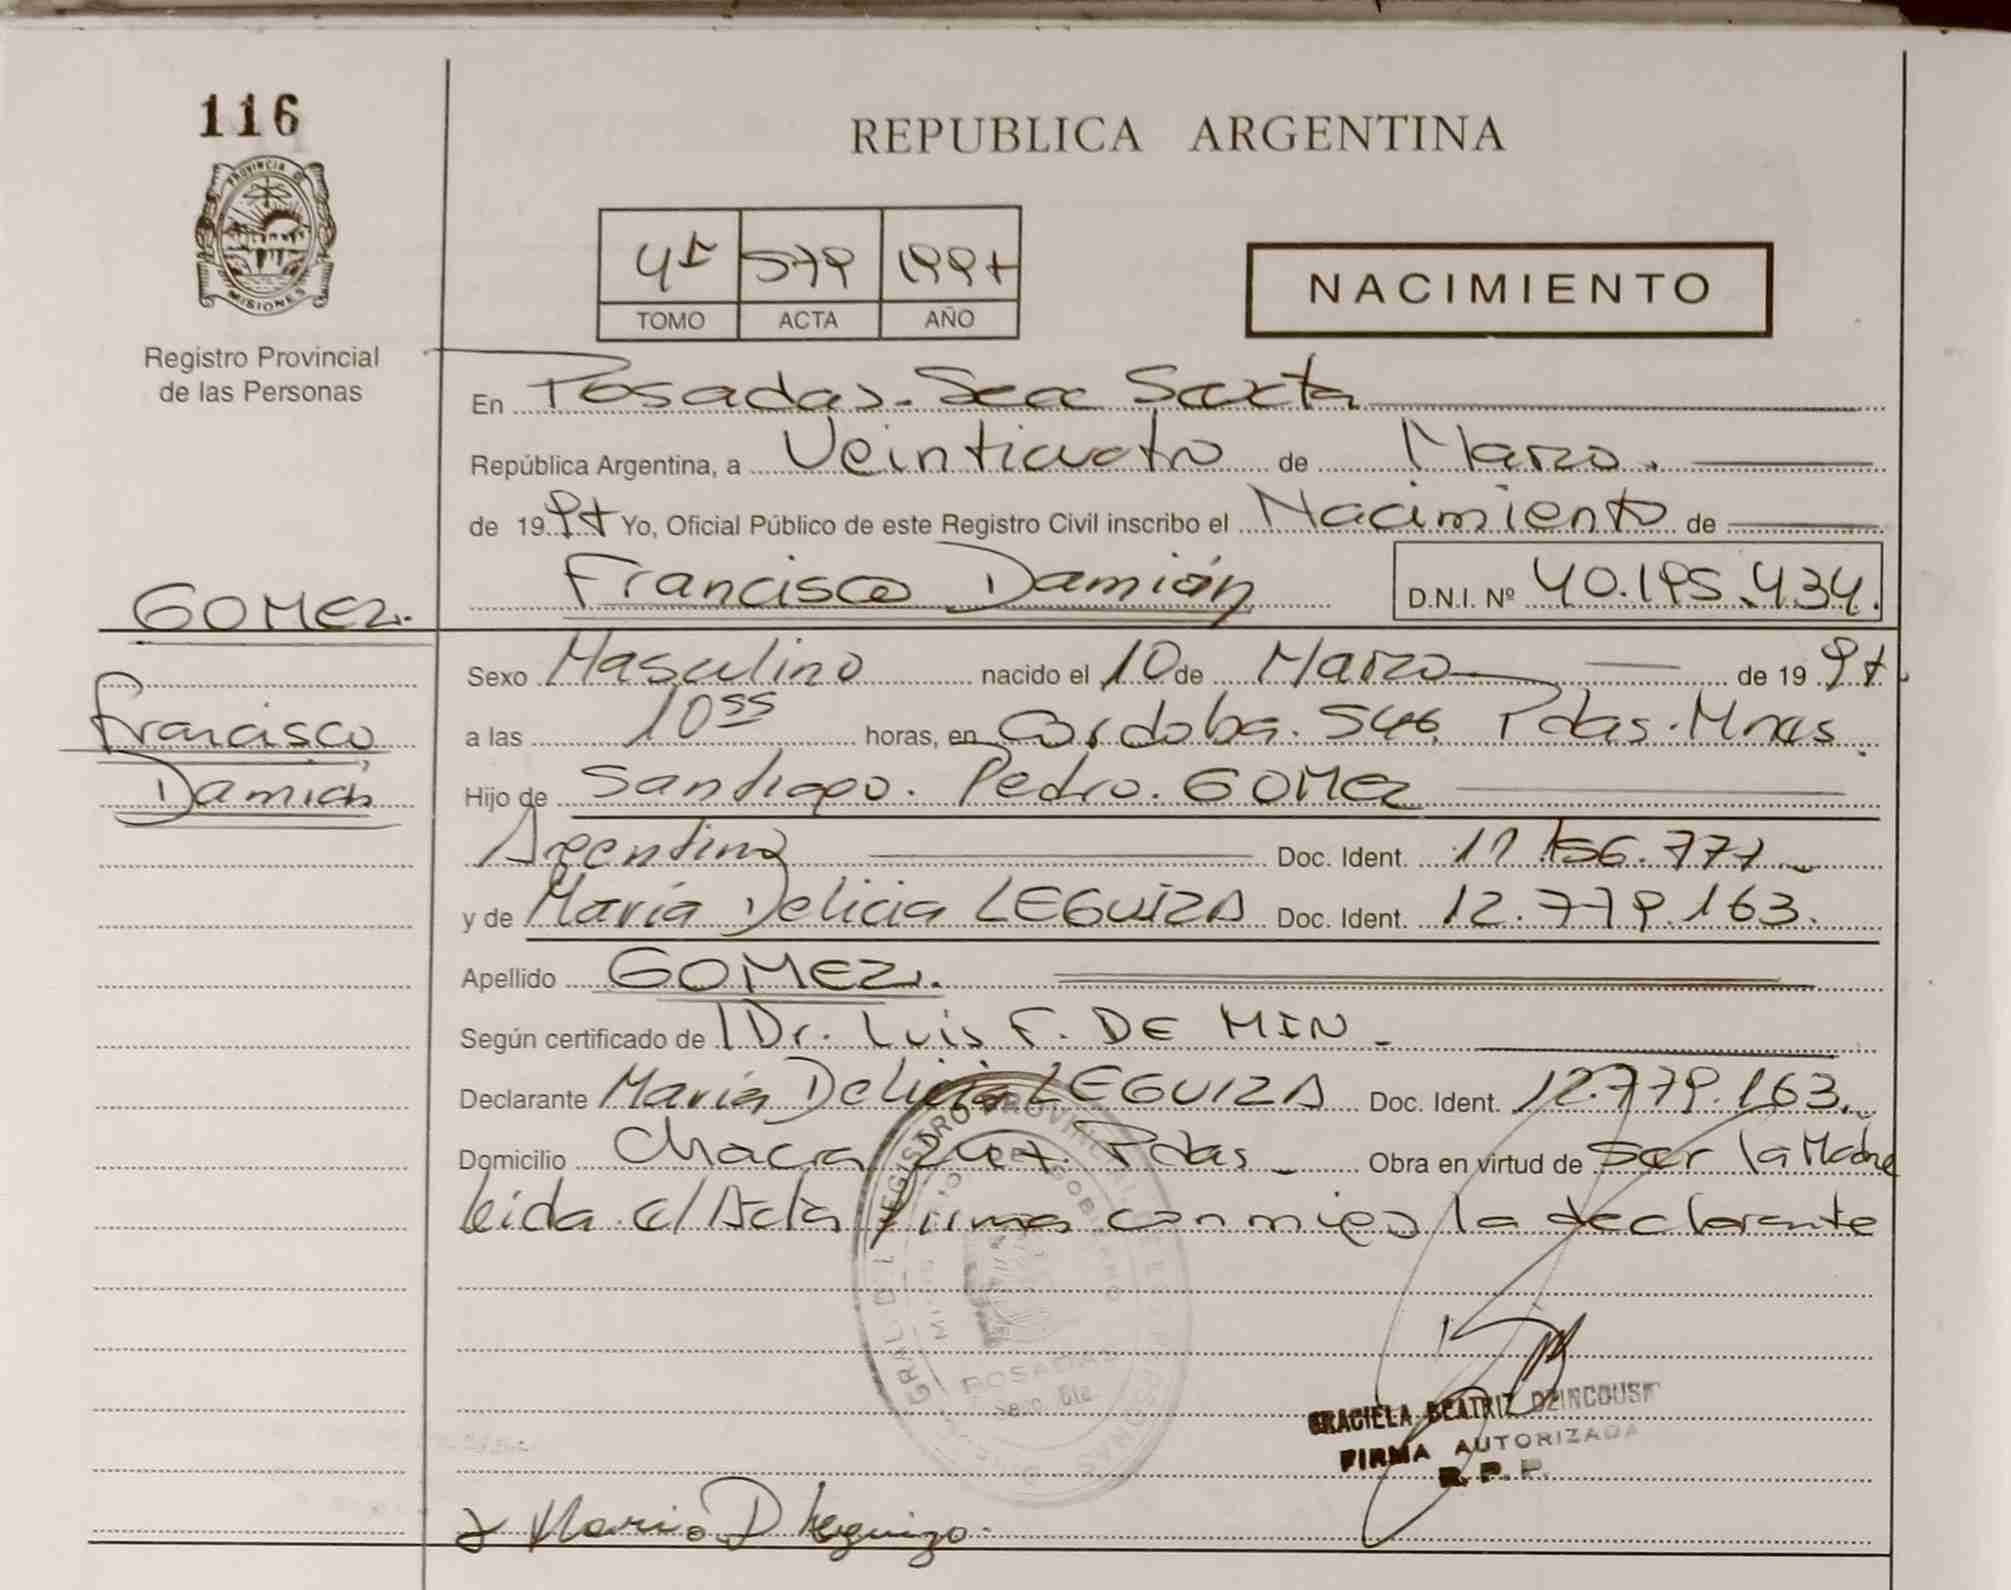 116
PROVINCIA DE
MISIONES
Registro Provincial
de las Personas
REPUBLICA ARGENTINA
4º 579 1997
TOMO ACTA AÑO
NACIMIENTO
En Posadas. Secc Sexta
República Argentina, a Veinticuatro de Marzo.
de 1997 Yo, Oficial Público de este Registro Civil inscribo el Nacimiento de
Francisco Damián D.N.I. Nº 40.195.434.
GOMEZ.
Francisco
Damián
Sexo Masculino nacido el 10 de Marzo de 1997
a las 10 55 horas, en Cordoba. 546. Pdas. Mnes.
Hijo de Santiago. Pedro. GOMEZ
Argentina Doc. Ident. 11.156.777
y de María Delicia LEGUIZA Doc. Ident. 12.779.163.
Apellido GOMEZ.
Según certificado de Dr. Luis F. DE MIN
Declarante María Delicia LEGUIZA Doc. Ident. 12.779.163.
Domicilio Chacra 247. Pdas Obra en virtud de Ser la Madre
leida c/ Acta firma conmigo la declarante
REGISTRO PROVINCIAL DE LAS PERSONAS
POSADAS
GRACIELA BEATRIZ
FIRMA AUTORIZADA
R. P. P.
Maria D Leguiza.